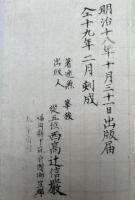 明治十八年十月三十一日出版届
仝十九年二月刻成
著述兼
出版人
華族
従五位西高辻信厳
福岡縣